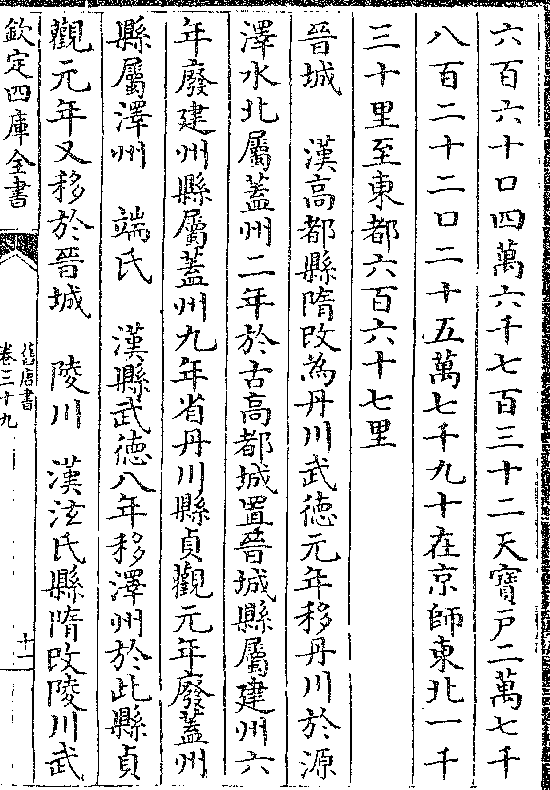 六百六十口四萬六千七百三十二天寶戸二萬七千
八百二十二口二十五萬七千九十在京師東北一千
三十里至東都六百六十七里
晉城　漢高都縣隋改為丹川武德元年移丹川於源
澤水北屬蓋州二年於古高都城置晉城縣屬建州六
年廢建州縣屬蓋州九年省丹川縣貞觀元年廢蓋州
縣屬澤州　端氏　漢縣武德八年移澤州於此縣貞
觀元年又移於晉城　陵川　漢泫氏縣隋改陵川武
欽定四庫全書
舊唐書
卷三十九
十一